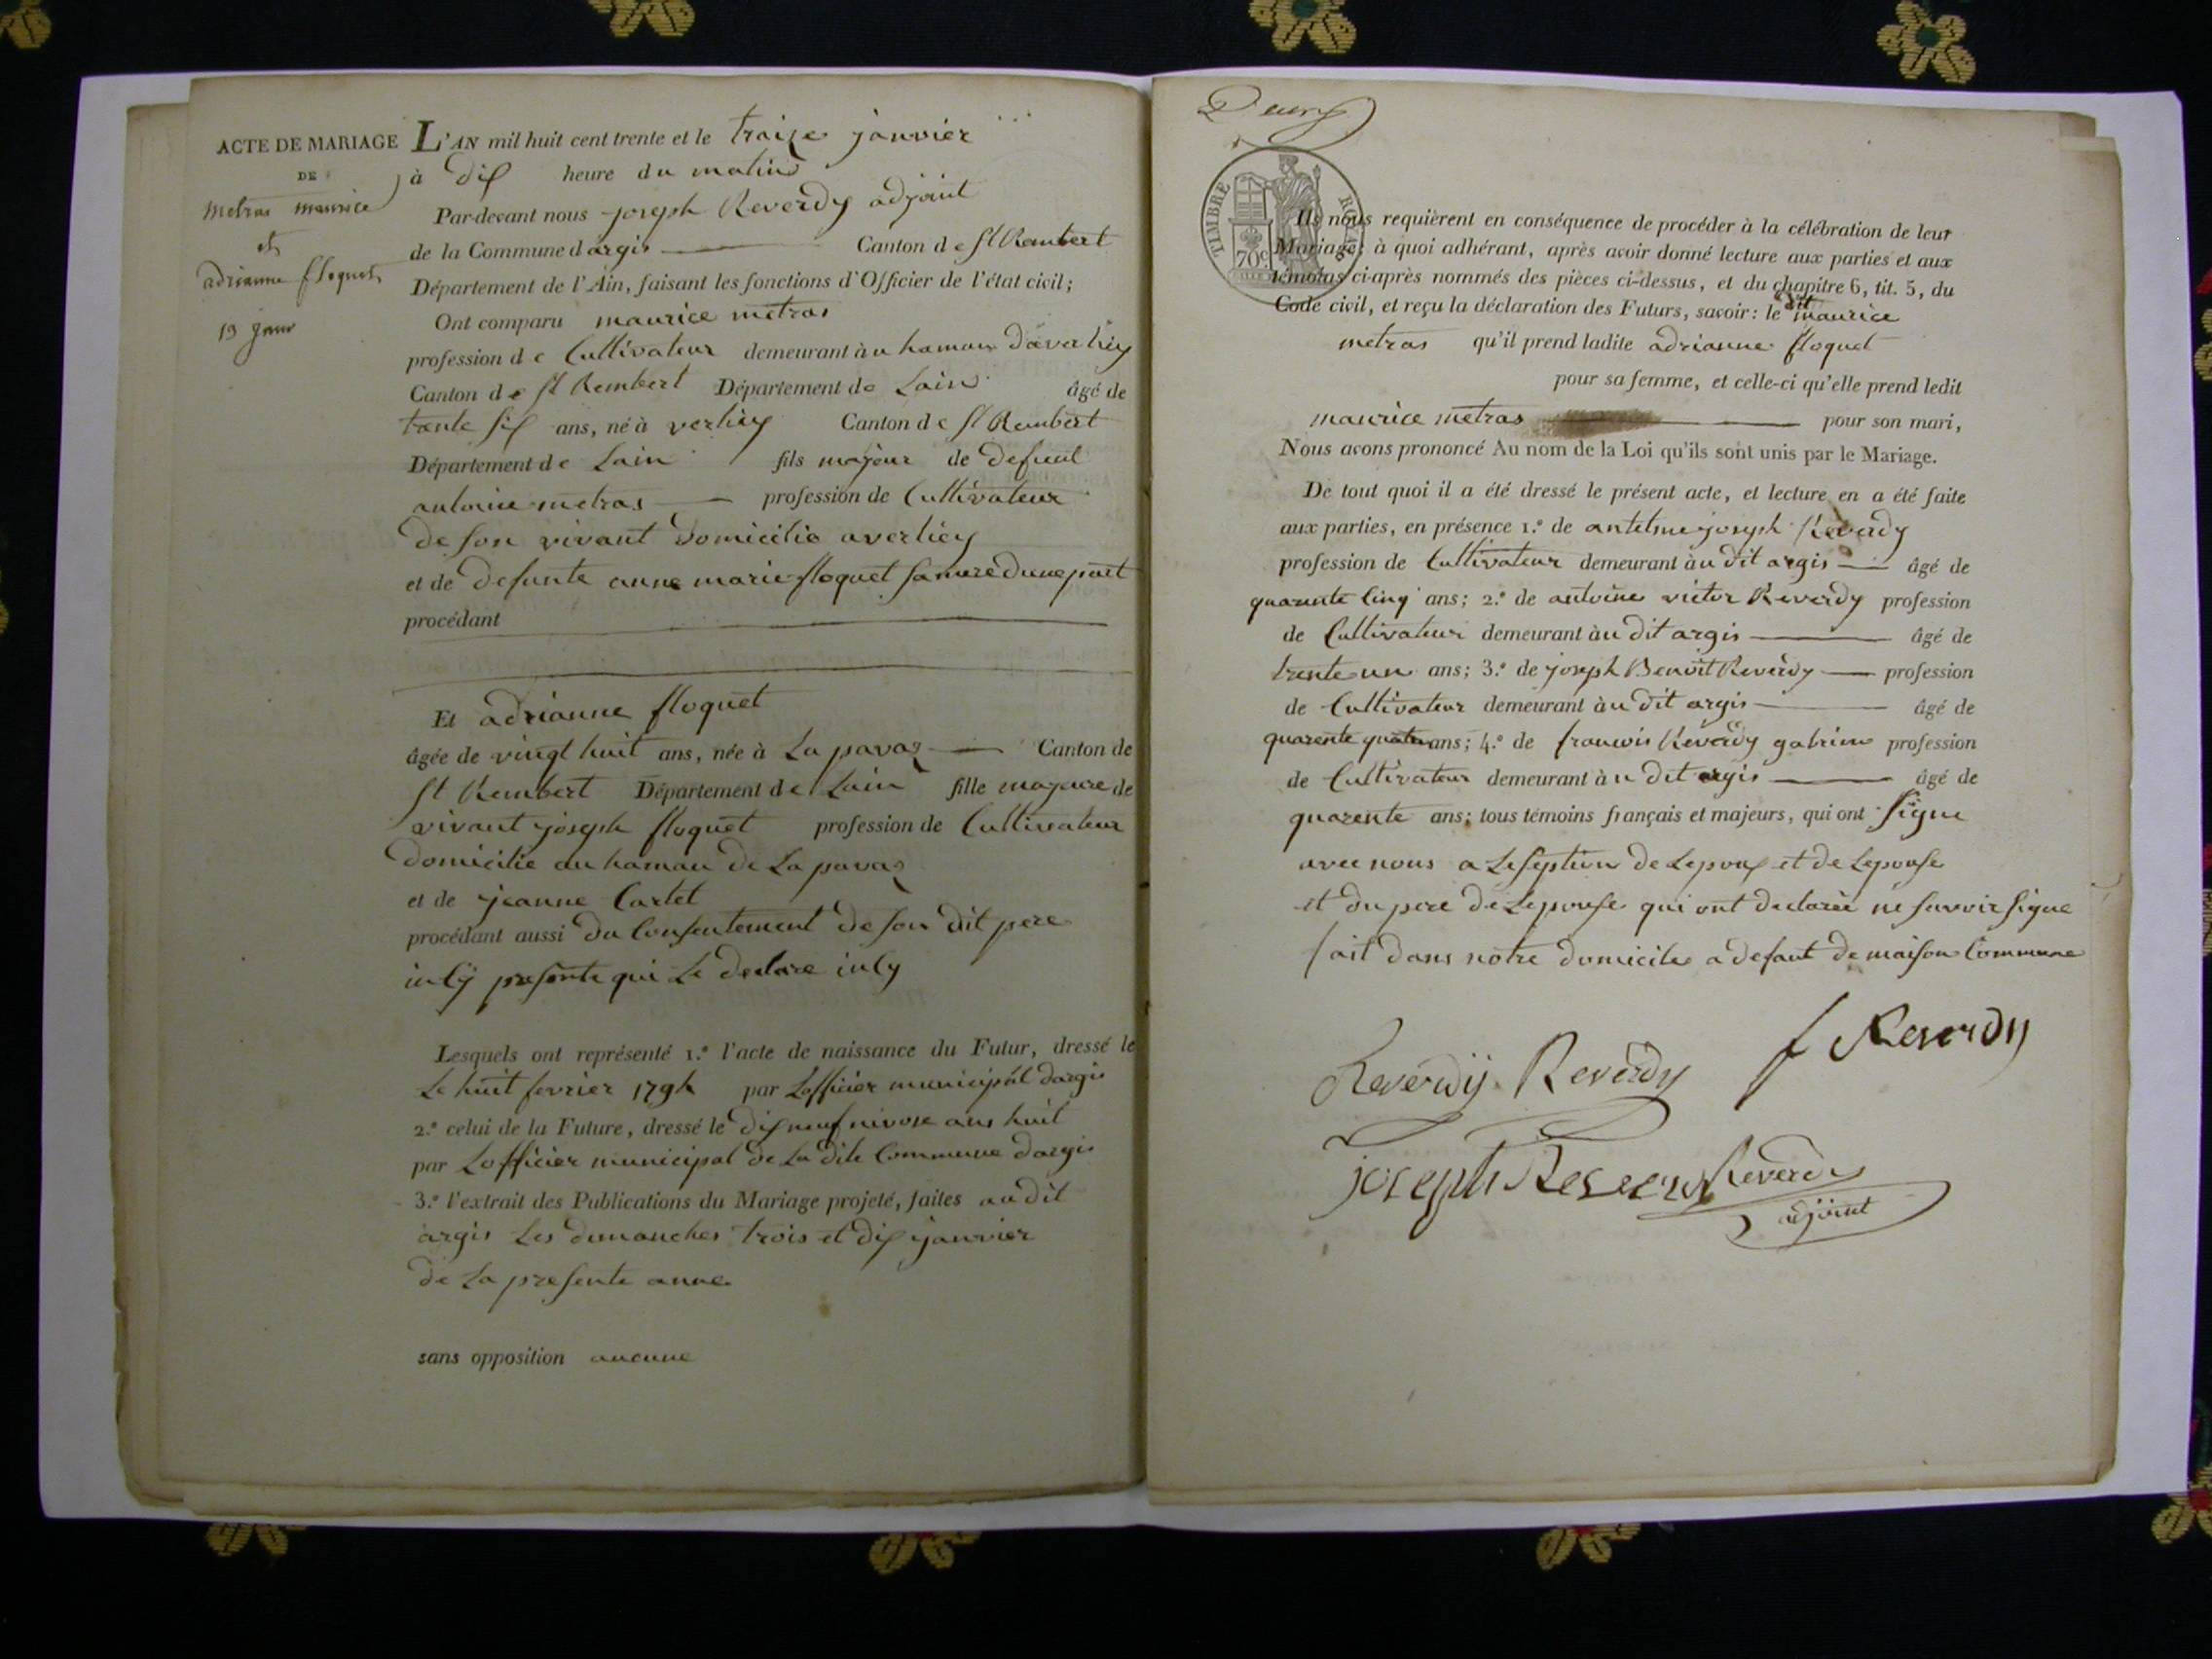 ACTE DE MARIAGE
DE
metras maurice
et
adrianne floquet
13 janv
L'AN mil huit cent trente et le traize janvier
à dix heure du matin
Par-devant nous joseph Reverdy adjoint
de la Commune d argis Canton de St Rembert
Département de l'Ain, faisant les fonctions d'Officier de l'état civil;
Ont comparu maurice metras
profession de Cultivateur demeurant à u hamau d'averliey
Canton de St Rembert Département de Lain âgé de
trente six ans, né à verliey Canton de St Rembert
Département de Lain fils majeur de defunt
antoine metras profession de Cultivateur
de son vivant domicilie averliey
et de defunte anne marie floquet sa mere dune part
procédant
Et adrianne floquet
âgée de vingt huit ans, née à La pavaz Canton de
St Rembert Département de Lain fille majeure de
vivant joseph floquet profession de Cultivateur
domicilie au hamau de La pavaz
et de jeanne Cartet
procédant aussi du Consentement de son dit pere
icy presente qui Le declare icy
Lesquels ont représenté 1.º l'acte de naissance du Futur, dressé le
Le huit fevrier 1794 par Lofficier municipal dargis
2.º celui de la Future, dressé le dix neuf nivose ans huit
par Lofficier municipal de La dite Commune dargis
3.º l'extrait des Publications du Mariage projeté, faites au dit
argis Les dimanches trois et dix janvier
de La presente anne
sans opposition aucune
TIMBRE ROYAL
70c
Ils nous requièrent en conséquence de procéder à la célébration de leur
Mariage; à quoi adhérant, après avoir donné lecture aux parties et aux
témoins ci-après nommés des pièces ci-dessus, et du chapitre 6, tit. 5, du
Code civil, et reçu la déclaration des Futurs, savoir: le dit maurice
metras qu'il prend ladite adrianne floquet
pour sa femme, et celle-ci qu'elle prend ledit
maurice metras pour son mari,
Nous avons prononcé Au nom de la Loi qu'ils sont unis par le Mariage.
De tout quoi il a été dressé le présent acte, et lecture en a été faite
aux parties, en présence 1.º de antelme joseph Reverdy
profession de Cultivateur demeurant à u dit argis âgé de
quarente Cinq ans; 2.º de antoine victor Reverdy profession
de Cultivateur demeurant à u dit argis âgé de
trente un ans; 3.º de joseph Benoit Reverdy profession
de Cultivateur demeurant à u dit argis âgé de
quarente quatre ans; 4.º de francois Reverdy profession
de Cultivateur demeurant à u dit argis âgé de
quarente ans; tous témoins français et majeurs, qui ont signe
avec nous a Lexseption de Lepoux et de Lepouse
et du pere de Lepouse qui ont declarée ne savoir signe
fait dans notre domicile a defaut de maison Commune
Reverdy Reverdy f Reverdy
joseph Reverdy Reverdy
adjoint